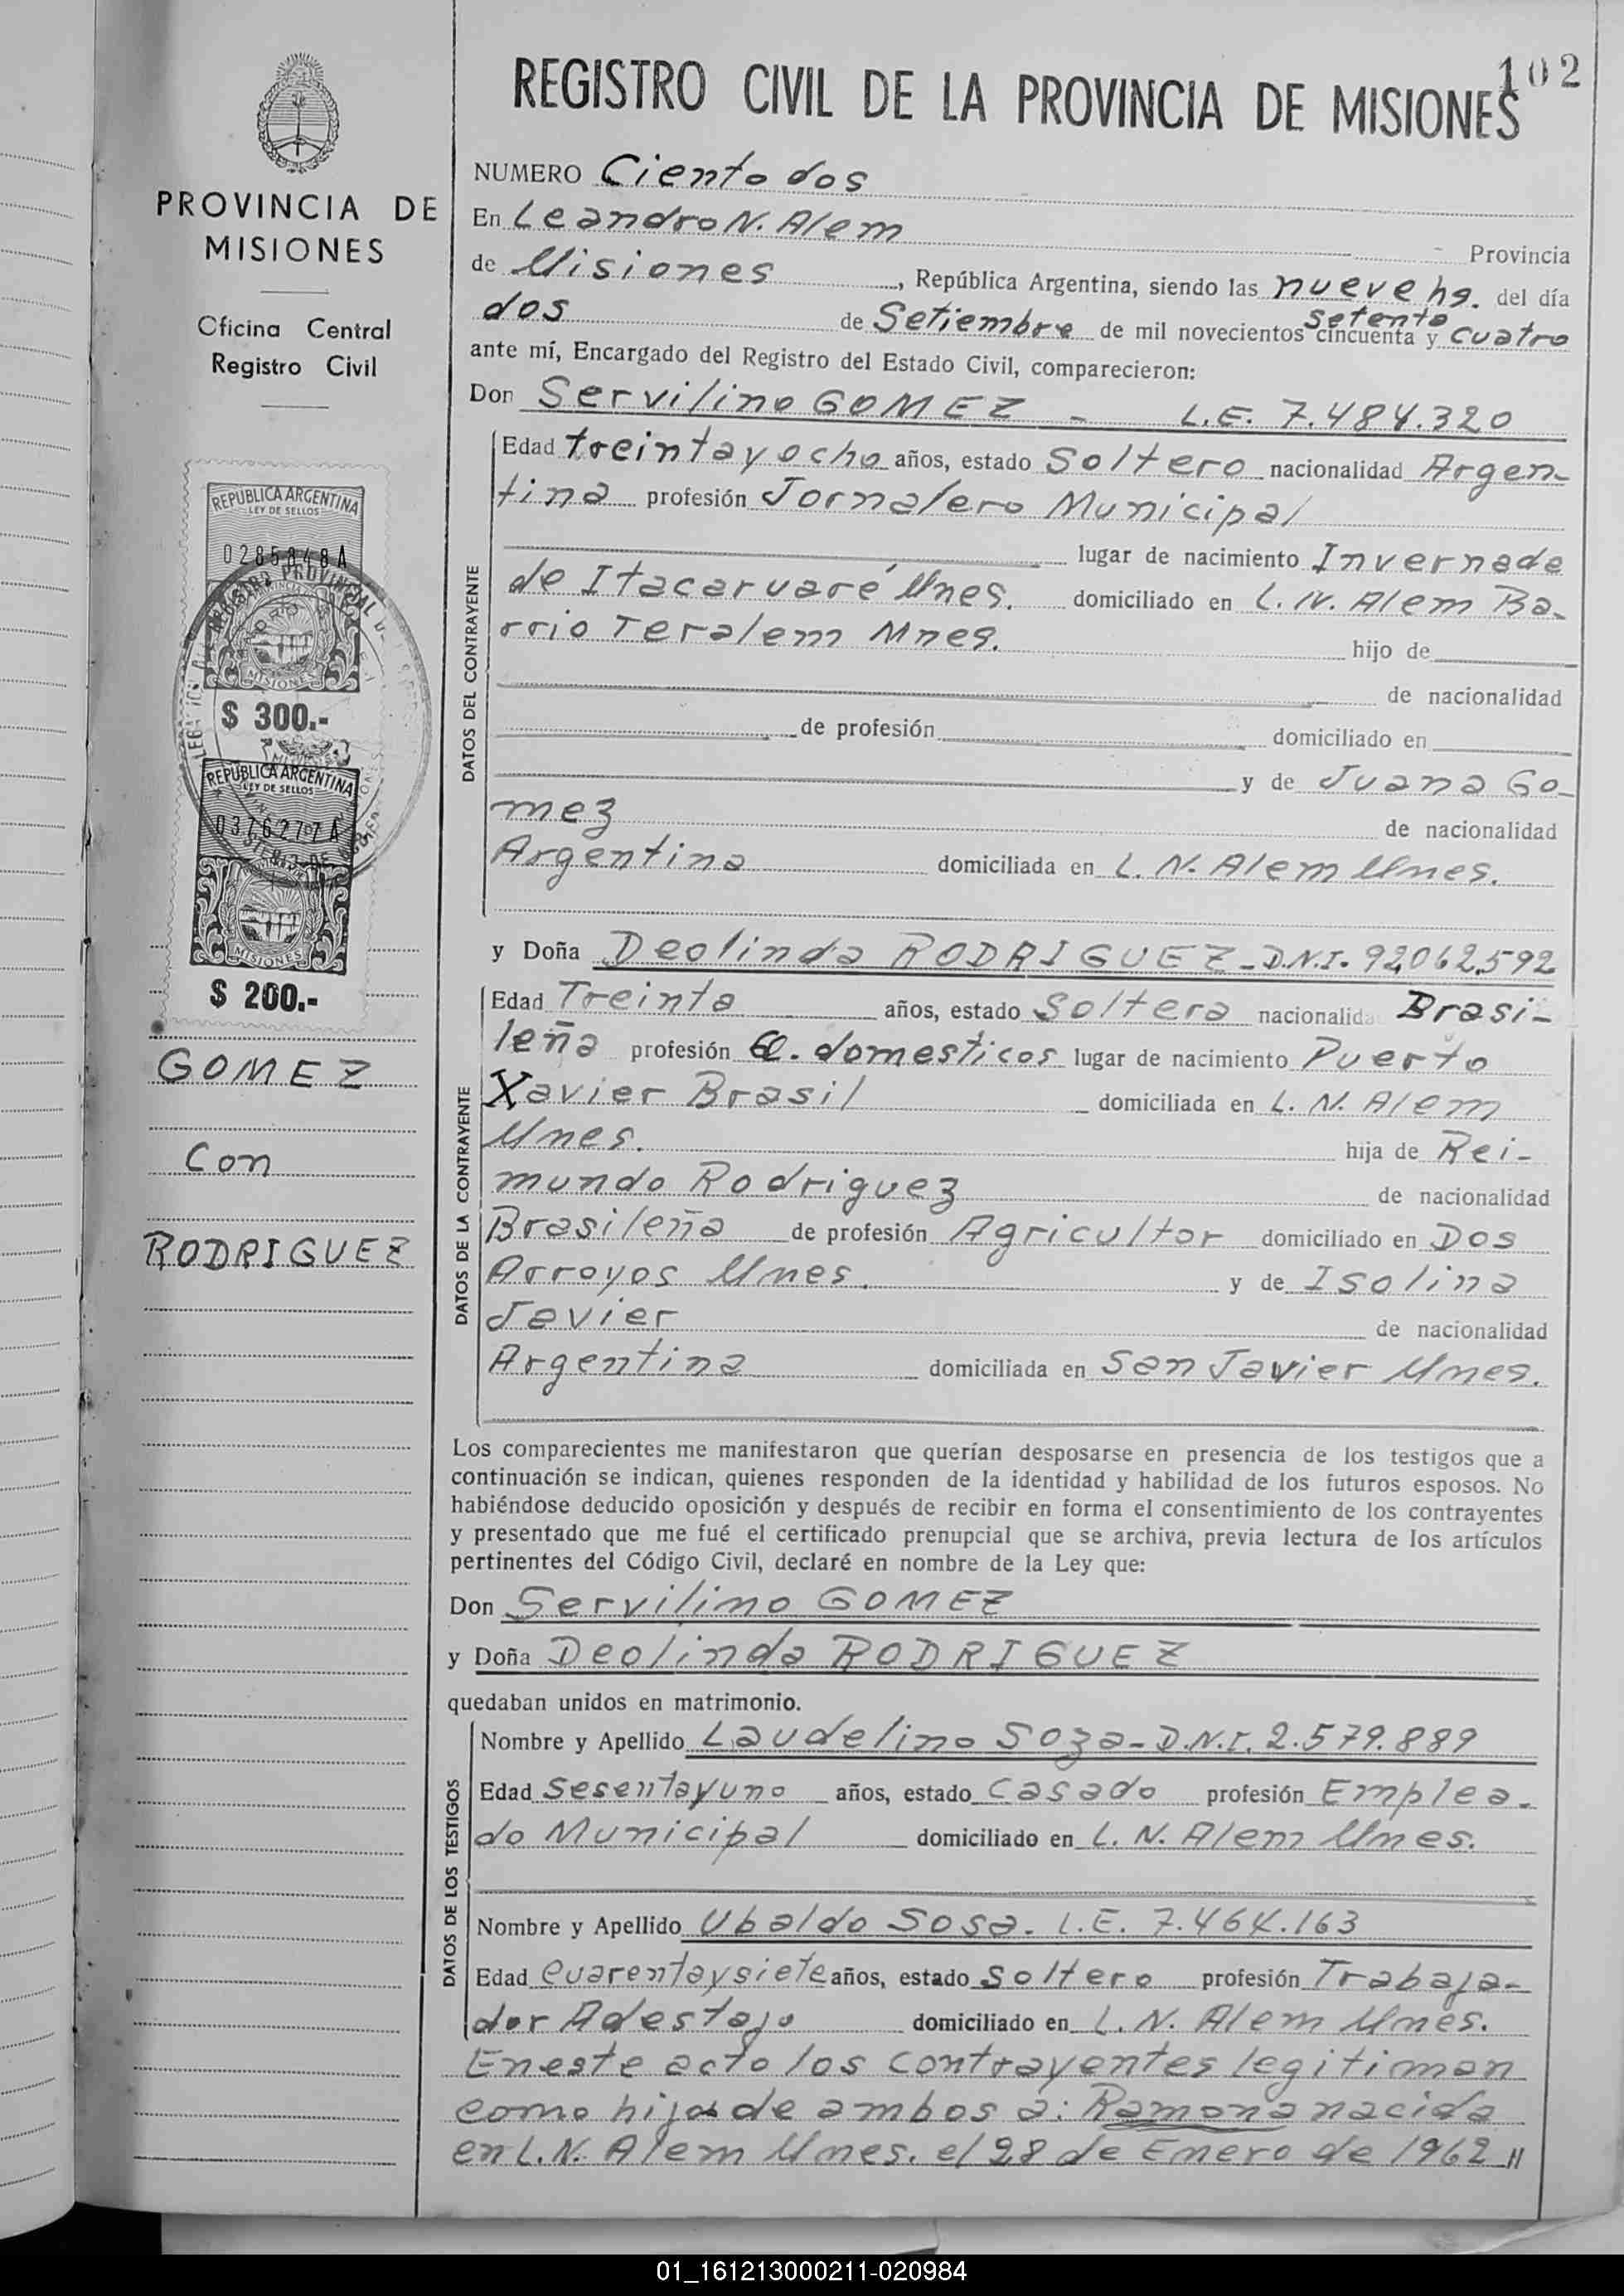 102
REGISTRO CIVIL DE LA PROVINCIA DE MISIONES
PROVINCIA DE
MISIONES
Oficina Central
Registro Civil
REPUBLICA ARGENTINA
LEY DE SELLOS
0285848 A
MISIONES
$ 300.-
REPUBLICA ARGENTINA
LEY DE SELLOS
0376277 A
MISIONES
$ 200.-
GOMEZ
Con
RODRIGUEZ
NUMERO Ciento dos
En Leandro N. Alem Provincia
de Misiones, República Argentina, siendo las nueve hs. del día
dos de Setiembre de mil novecientos cincuenta setenta y cuatro
ante mí, Encargado del Registro del Estado Civil, comparecieron:
Don Servilino GOMEZ - L.E. 7.484.320
DATOS DEL CONTRAYENTE
Edad treinta y ocho años, estado Soltero nacionalidad Argen-
tina profesión Jornalero Municipal
lugar de nacimiento Invernada
de Itacaruaré Mnes. domiciliado en L. N. Alem Ba-
rrio Teralem Mnes. hijo de
de nacionalidad
de profesión domiciliado en
y de Juana Go-
mez de nacionalidad
Argentina domiciliada en L. N. Alem Mnes.
y Doña Deolinda RODRIGUEZ - D.N.I. 92.062.592
DATOS DE LA CONTRAYENTE
Edad Treinta años, estado Soltera nacionalida Brasi-
leña profesión Q. domesticos lugar de nacimiento Puerto
Xavier Brasil domiciliada en L. N. Alem
Mnes. hija de Rei-
mundo Rodriguez de nacionalidad
Brasileña de profesión Agricultor domiciliado en Dos
Arroyos Mnes. y de Isolina
Javier de nacionalidad
Argentina domiciliada en San Javier Mnes.
Los comparecientes me manifestaron que querían desposarse en presencia de los testigos que a
continuación se indican, quienes responden de la identidad y habilidad de los futuros esposos. No
habiéndose deducido oposición y después de recibir en forma el consentimiento de los contrayentes
y presentado que me fué el certificado prenupcial que se archiva, previa lectura de los artículos
pertinentes del Código Civil, declaré en nombre de la Ley que:
Don Servilino GOMEZ
y Doña Deolinda RODRIGUEZ
quedaban unidos en matrimonio.
DATOS DE LOS TESTIGOS
Nombre y Apellido Laudelino Soza - D.N.I. 2.579.889
Edad Sesenta y uno años, estado Casado profesión Emplea-
do Municipal domiciliado en L. N. Alem Mnes.
Nombre y Apellido Ubaldo Sosa - L.E. 7.464.163
Edad Cuarenta y siete años, estado Soltero profesión Trabaja-
dor Adestajo domiciliado en L. N. Alem Mnes.
En este acto los contrayentes legitiman
como hija de ambos a: Ramona nacida
en L. N. Alem Mnes. el 28 de Enero de 1962 "
01_161213000211-020984